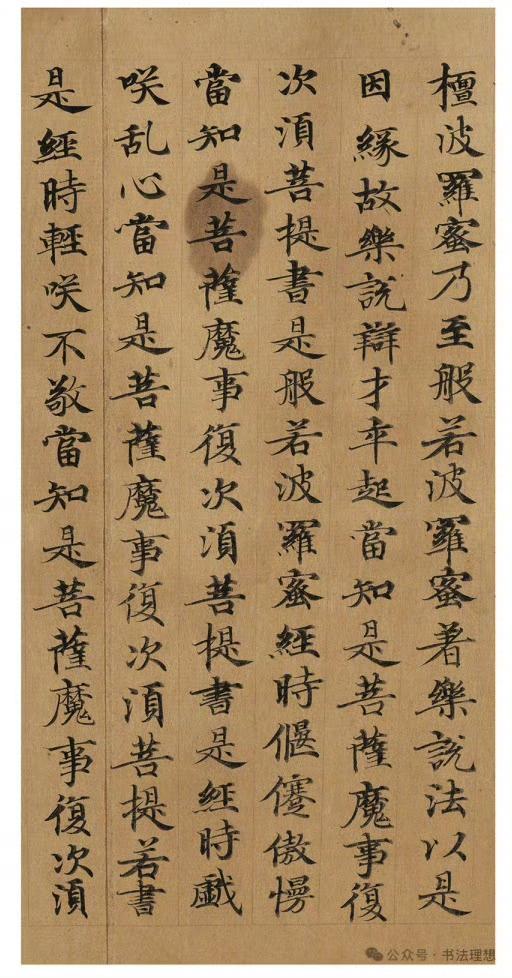 檀波羅蜜乃至般若波羅蜜著樂說法以是
因緣故樂說辯才卒起當知是菩薩魔事復
次湏菩提書是般若波羅蜜經時偃蹇傲慢
當知是菩薩魔事復次湏菩提書是經時戲
咲乱心當知是菩薩魔事復次湏菩提若書
是經時輕咲不敬當知是菩薩魔事復次湏
公众号·书法理想